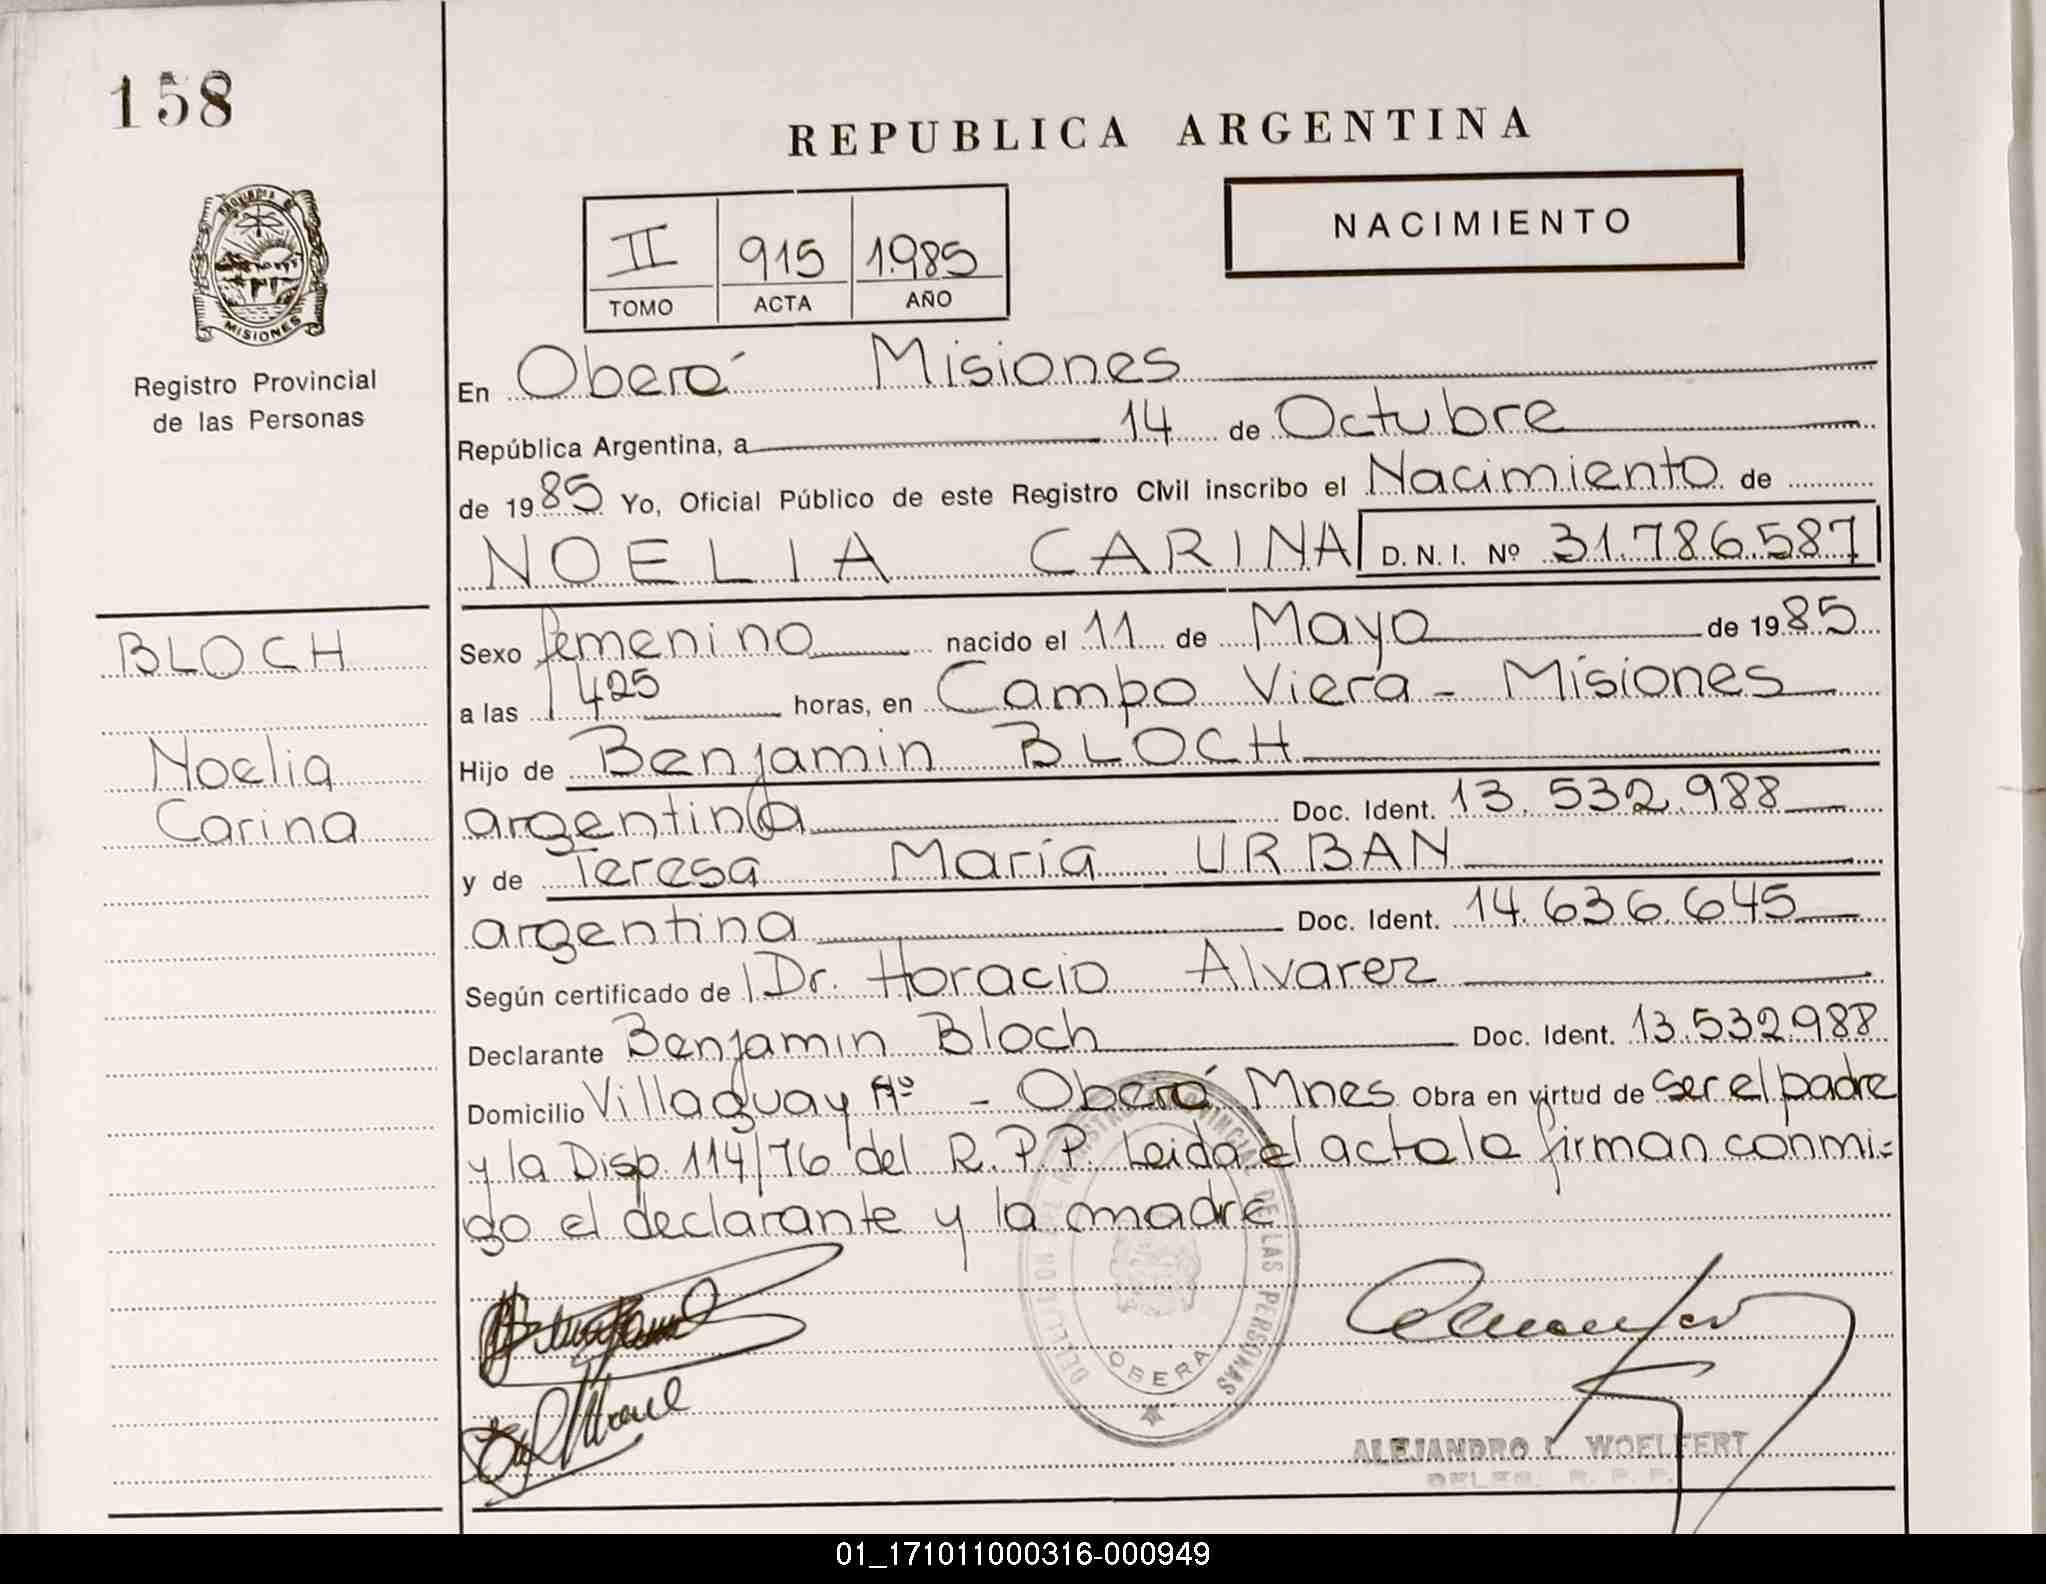 158
REPUBLICA ARGENTINA
NACIMIENTO
II 915 1985
TOMO ACTA AÑO
PROVINCIA DE
MISIONES
Registro Provincial
de las Personas
En Oberá Misiones
República Argentina, a 14 de Octubre
de 1985 Yo, Oficial Público de este Registro Civil inscribo el Nacimiento de
NOELIA CARINA D.N.I. Nº 31.786.587
BLOCH
Noelia
Carina
Sexo femenino nacido el 11 de Mayo de 1985
a las 1425 horas, en Campo Viera - Misiones
Hijo de Benjamin BLOCH
argentino Doc. Ident. 13.532.988
y de Teresa María URBAN
argentina Doc. Ident. 14.636.645
Según certificado de Dr. Horacio Alvarez
Declarante Benjamin Bloch Doc. Ident. 13.532.988
Domicilio Villaguay - Oberá Mnes Obra en virtud de ser el padre
y la Disp. 114/76 del R.P.P. Leida el acta la firman conmi=
go el declarante y la madre
PROVINCIAL DE LAS PERSONAS
OBERA
ALEJANDRO L. WOELFERT
DELEG. R.P.P.
01_171011000316-000949